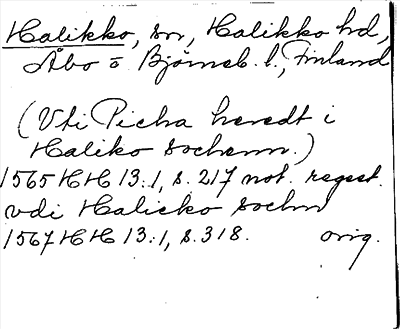 Halikko, sn, Halikko hd,
Åbo o Björneb. l., Finland
(Vti Picha heredt i
Haliko sochenn.)
1565 HH 13:1, s. 217 not. regest.
vdi Halicko sochn
1567 HH 13:1, s. 318. orig.